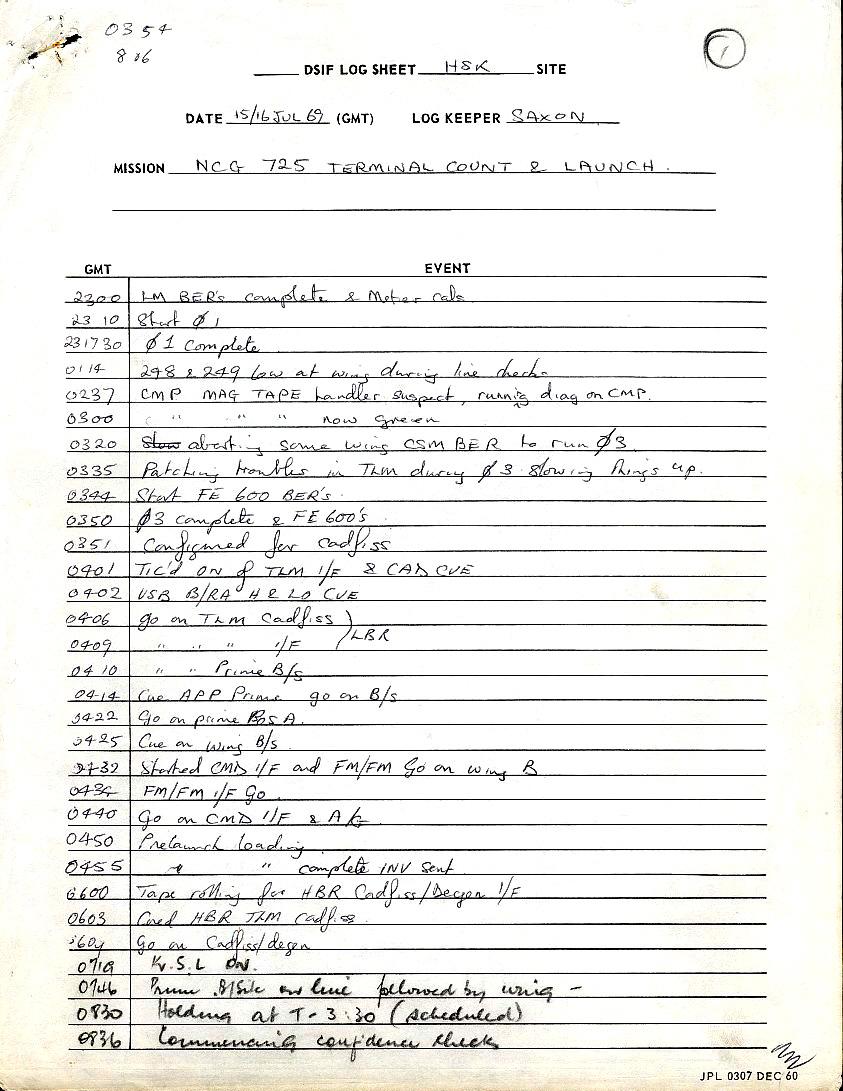 0354
806
1
DSIF LOG SHEET HSK SITE
DATE 15/16 JUL 69 (GMT) LOG KEEPER SAXON
MISSION NCG 725 TERMINAL COUNT & LAUNCH.
GMT EVENT
2300 LM BER's complete & Meter cals
2310 Start Ø 1
231730 Ø 1 Complete
0114 248 & 249 low at wing during line checks
0237 CMP MAG TAPE handler suspect, running diag on CMP.
0300 " " " now green
0320 aborting some wing CSM BER to run Ø3.
0335 Patching troubles in TLM during Ø3 slowing things up.
0344 Start FE 600 BER's.
0350 Ø3 complete & FE 600's
0351 Configured for cadfiss
0401 TIC'd ON of TLM I/F & CAD CUE
0402 USB B/RA H & LO CUE
0406 go on TLM Cadfiss
0409 " " " I/F ) LBR
0410 " " Prime B/s
0414 Cue APP Prime go on B/s
0422 Go on prime A.
0425 Cue on wing B/s.
0432 Started CMD I/F and FM/FM Go on wing B
FM/FM I/F Go.
0440 Go on CMD I/F & A/G
0450 Prelaunch loading.
0455 " " complete INV sent.
0600 Tape rolling for HBR Cadfiss/Decom I/F
0603 Cued HBR TLM cadfiss.
0604 Go on Cadfiss/decom
K.S.L ON.
0746 Prime B/Site on line followed by wing -
0830 Holding at T-3:30 (scheduled)
0836 Commencing confidence checks
JPL 0307 DEC 60